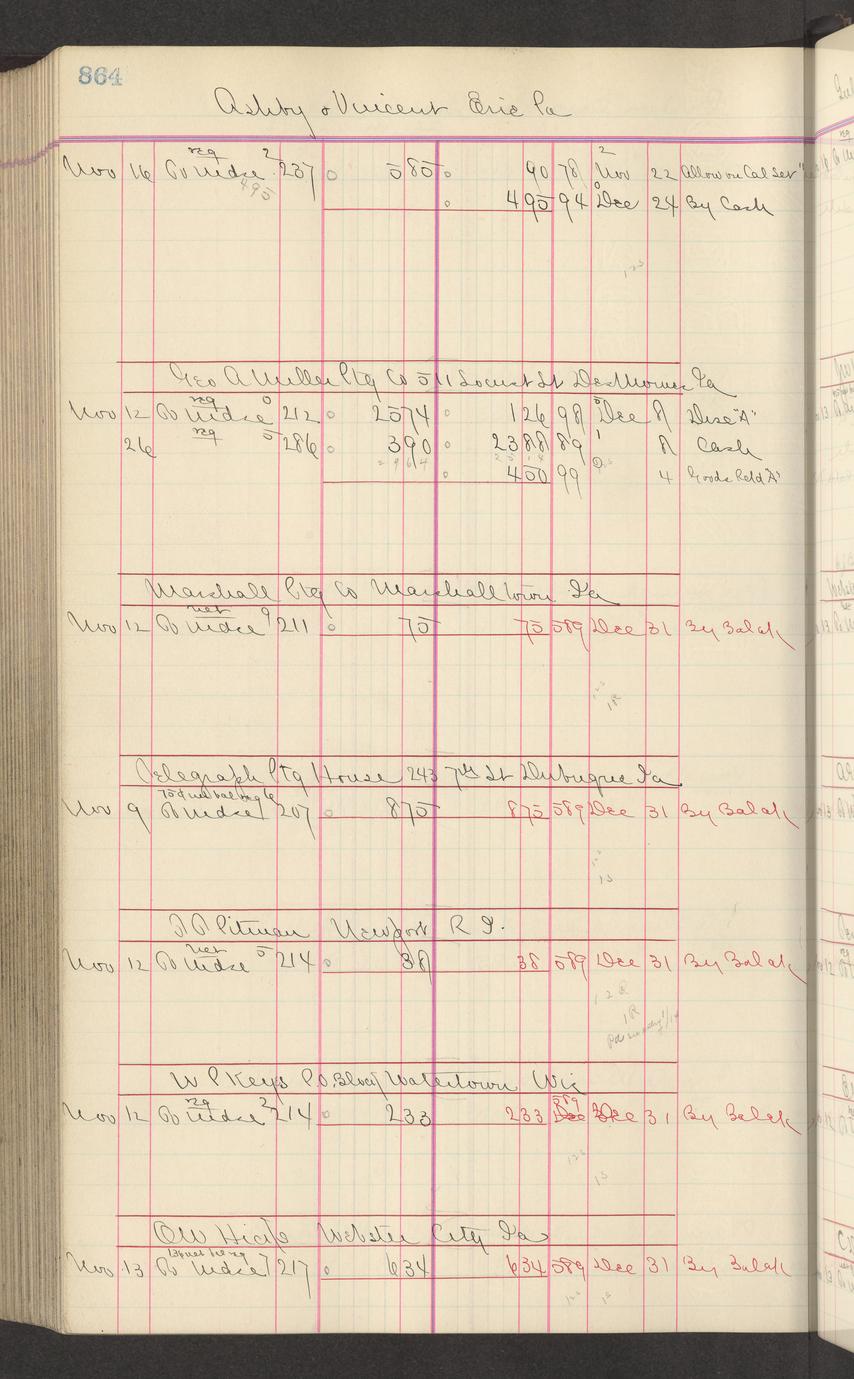 864
Ashby & Vincent Erie Pa
Nov 16 To Mdse reg 2 237 585 90 78 2 Nov 22 Allow on Cal Ser
495 495 94 0 Dec 24 By Cash
Geo A Miller Ptg Co 511 Locust St Des Moines Ia
Nov 12 To Mdse reg 0 212 2574 126 98 5 Dec 8 Disc "A"
26 reg 5 286 390 2388 89 1 8 Cash
2964 2514
450 99 4 Goods Retd "A"
Marshall Ptg Co Marshalltown Ia
Nov 12 To Mdse net 9 211 75 75 589 Dec 31 By Balak
Telegraph Ptg House 243 7th St Dubuque Ia
Nov 9 To Mdse 6 207 875 875 589 Dec 31 By Balak
15
Pitman Newport R I.
Nov 12 To Mdse net 5 214 38 38 589 Dec 31 By Balak
12 R
1R
W P Keys P.O. Block Watertown Wis
Nov 12 To Mdse reg 2 214 233 233 589 Dec 31 By Balak
15
O W Webster City Ia
Nov 13 To Mdse 7 217 634 634 589 Dec 31 By Balak